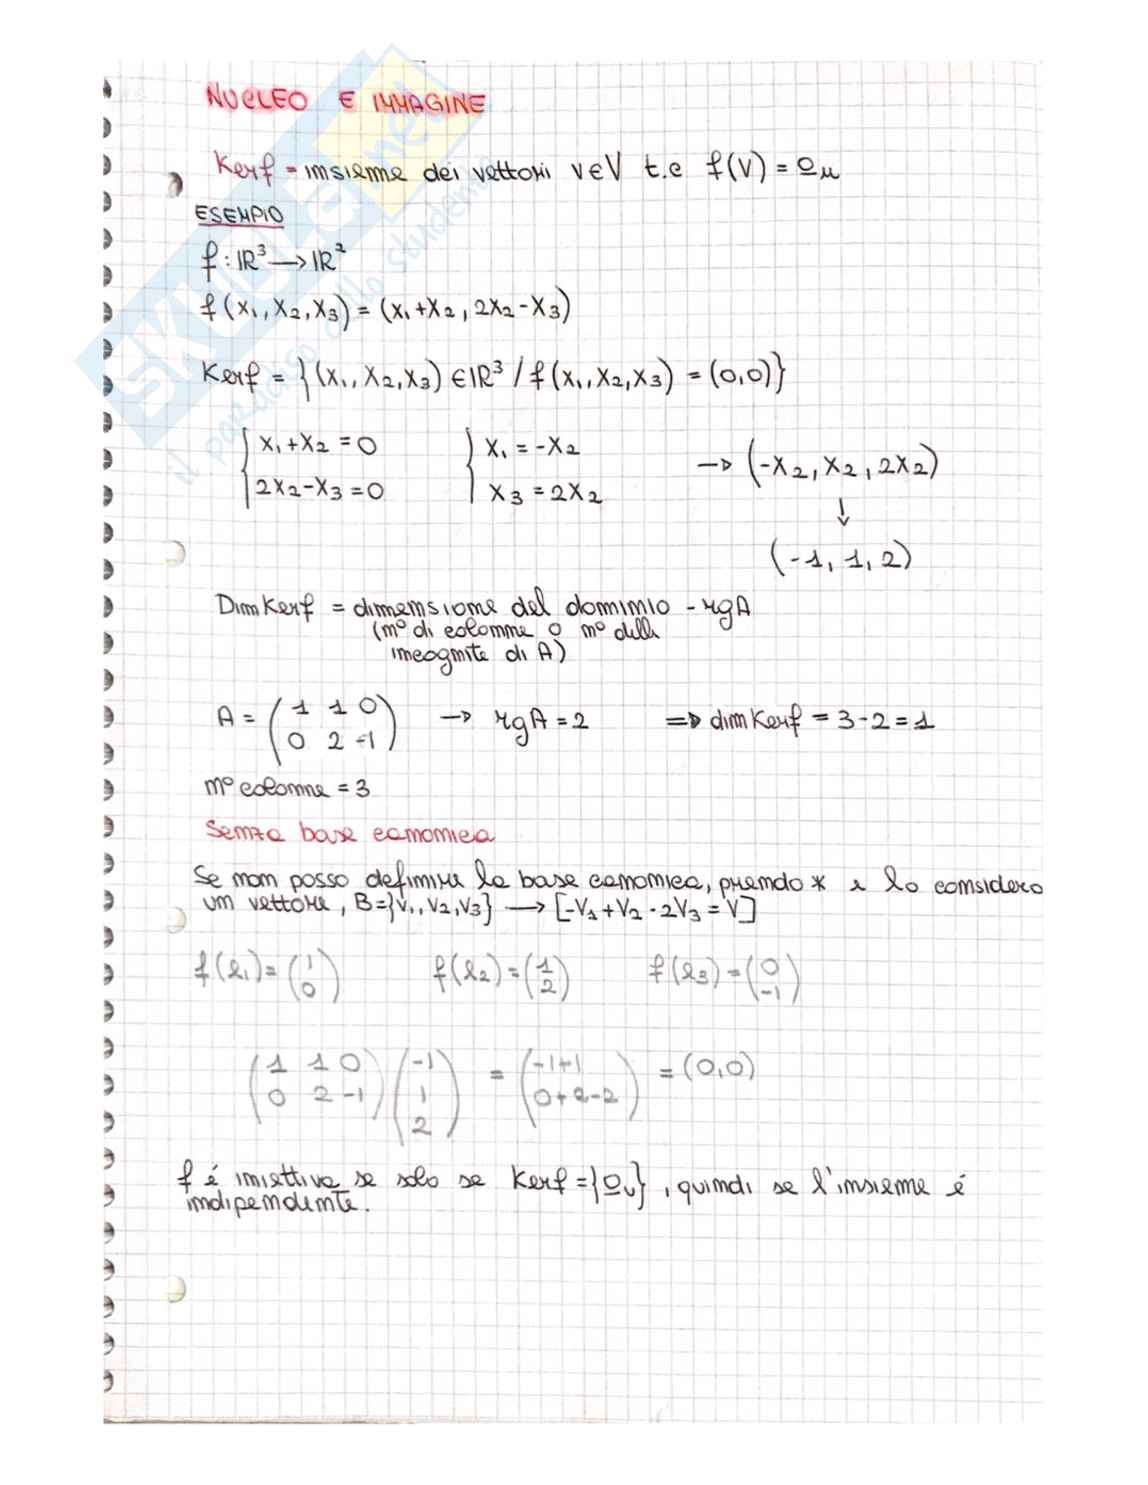 NUCLEO E IMMAGINE
Kerf = insieme dei vettori v∈V t.c f(V) = 0u
ESEMPIO
f: ℝ³ → ℝ²
f(x₁, x₂, x₃) = (x₁+x₂, 2x₂-x₃)
Kerf = {(x₁, x₂, x₃) ∈ ℝ³ / f(x₁, x₂, x₃) = (0,0)}
{ x₁+x₂ = 0 { x₁ = -x₂ → (-x₂, x₂, 2x₂)
2x₂-x₃ = 0 x₃ = 2x₂ ↓
(-1, 1, 2)
Dim Kerf = dimensione del dominio - rgA
(n° di colonne o n° delle
incognite di A)
A = (1 1 0 → rgA = 2 ⇒ dim Kerf = 3-2 = 1
0 2 -1)
n° colonne = 3
Senza base canonica
Se non posso definire la base canonica, prendo * e lo considero
un vettore, B={v₁, v₂, v₃} → [-v₁+v₂·2v₃ = v]
f(e₁) = (1 f(e₂) = (1 f(e₃) = (0
0) 2) -1)
(1 1 0 (-1 = (-1+1 = (0,0)
0 2 -1) 1 0+2-2)
2)
f é iniettiva se solo se Kerf = {0v}, quindi se l'insieme é
indipendente.
SKUOLA.net
il paradiso dello studente